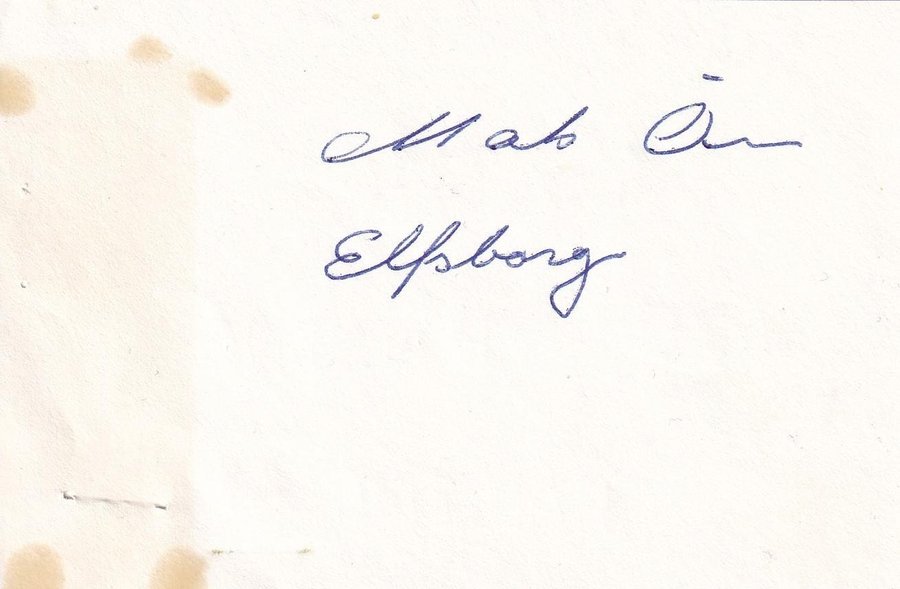 Mats Örn
Elfsborg